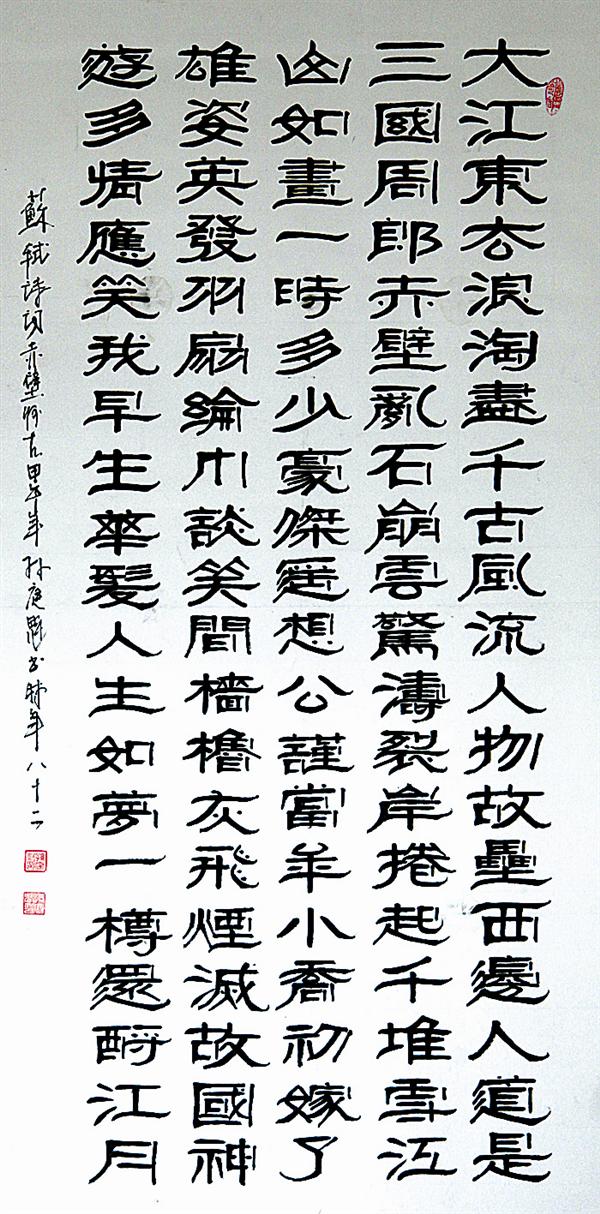 大江東去浪淘盡千古風流人物故壘西邊人道是
三國周郎赤壁亂石崩雲驚濤裂岸捲起千堆雪江
山如畫一時多少豪傑遙想公謹當年小喬初嫁了
雄姿英發羽扇綸巾談笑間檣櫓灰飛煙滅故國神
遊多情應笑我早生華髮人生如夢一樽還酹江月
蘇軾詩詞赤壁怀古甲午年 书時年八十二